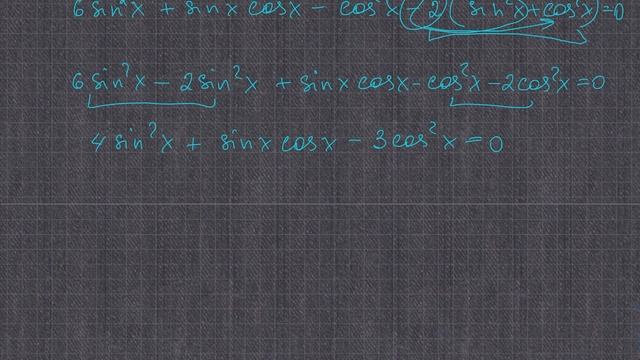 6 sin²x + sinx cosx - cos²x (-2)(sin²x + cos²x) = 0
6 sin²x - 2 sin²x + sinx cosx - cos²x - 2cos²x = 0
4 sin²x + sinx cosx - 3 cos²x = 0